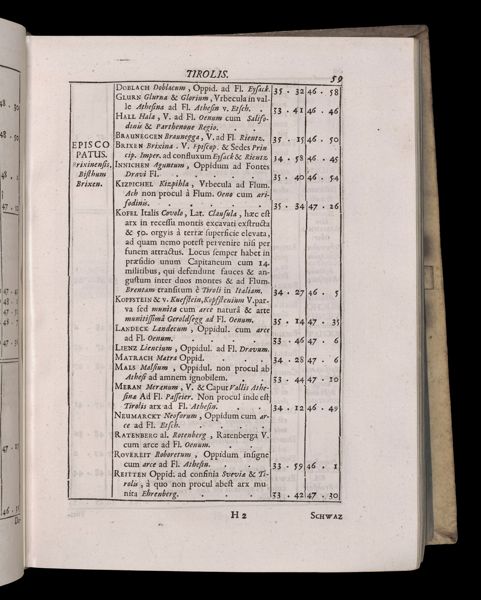 TIROLIS.
59
EPISCO
PATUS.
Brixinensis,
Bisthum
Brixen.
DOBLACH Doblacum, Oppid. ad Fl. Eysack. 35 . 32 46 . 58
GLURN Glurna & Glorium, Vrbecula in val-
le Athesina ad Fl. Athesin v. Etsch. . 53 . 41 46 . 46
HALL Hala, V. ad Fl. Oenum cum Salifo-
dinis & Parthenone Regio. . .
BRAUNEGGEN Braunegga, V. ad Fl. Rientz. 35 . 15 46 . 50
BRIXEN Brixina . V. Episcup. & Sedes Prin
cip. Imper. ad confluxum Eysack & Rientz. 34 . 58 46 . 45
INNICHEN Aguntum, Oppidum ad Fontes
Dravi Fl. . . . . . 35 . 40 46 . 54
KIZPICHEL Kizpihla, Vrbecula ad Flum.
Ach non procul à Flum. Oeno cum ari-
fodinis. . . . . . 35 . 34 47 . 26
KOFEL Italis Covolo, Lat. Clausula, hæc est
arx in recessu montis excavati exstructa
& 50. orgyis à terræ superficie elevata,
ad quam nemo potest pervenire nisi per
funem attractus. Locus semper habet in
præsidio unum Capitaneum cum 14.
militibus, qui defendunt fauces & an-
gustum inter duos montes & ad Flum.
Brentam transitum è Tiroli in Italiam. 34 . 27 46 . 5
KOPFSTEIN & v. Kuefstein, Kopfsteinium V. par-
va sed munita cum arce naturâ & arte
munitissimâ Geroldsegg ad Fl. Oenum. 35 . 14 47 . 35
LANDECK Landecum, Oppidul. cum arce
ad Fl. Oenum. . . . . 53 . 46 47 . 6
LIENZ Liencium, Oppidul. ad Fl. Dravum.
MATRACH Matra Oppid. . . . 34 . 28 47 . 6
MALS Malsium, Oppidul. non procul ab
Athesi ad amnem ignobilem. . . 53 . 44 47 . 10
MERAN Meranum, V. & Caput Vallis Athe-
sinæ Ad Fl. Passeier. Non procul inde est
Tirolis arx ad Fl. Athesin. . . 34 . 12 46 . 49
NEUMARCKT Neoforum, Oppidum cum ar-
ce ad Fl. Etsch. . . . .
RATENBERG al. Rotenberg, Ratenberga V.
cum arce ad Fl. Oenum. . . .
ROVEREIT Roboretum, Oppidum insigne
cum arce ad Fl. Athesin. . . . 53 . 59 46 . 1
REITTEN Oppid. ad confinia Sueviæ & Ti-
rolis; à quo non procul abest arx mu
nita Ehrenberg. . . . . 53 . 42 47 . 30
H 2
SCHWAZ